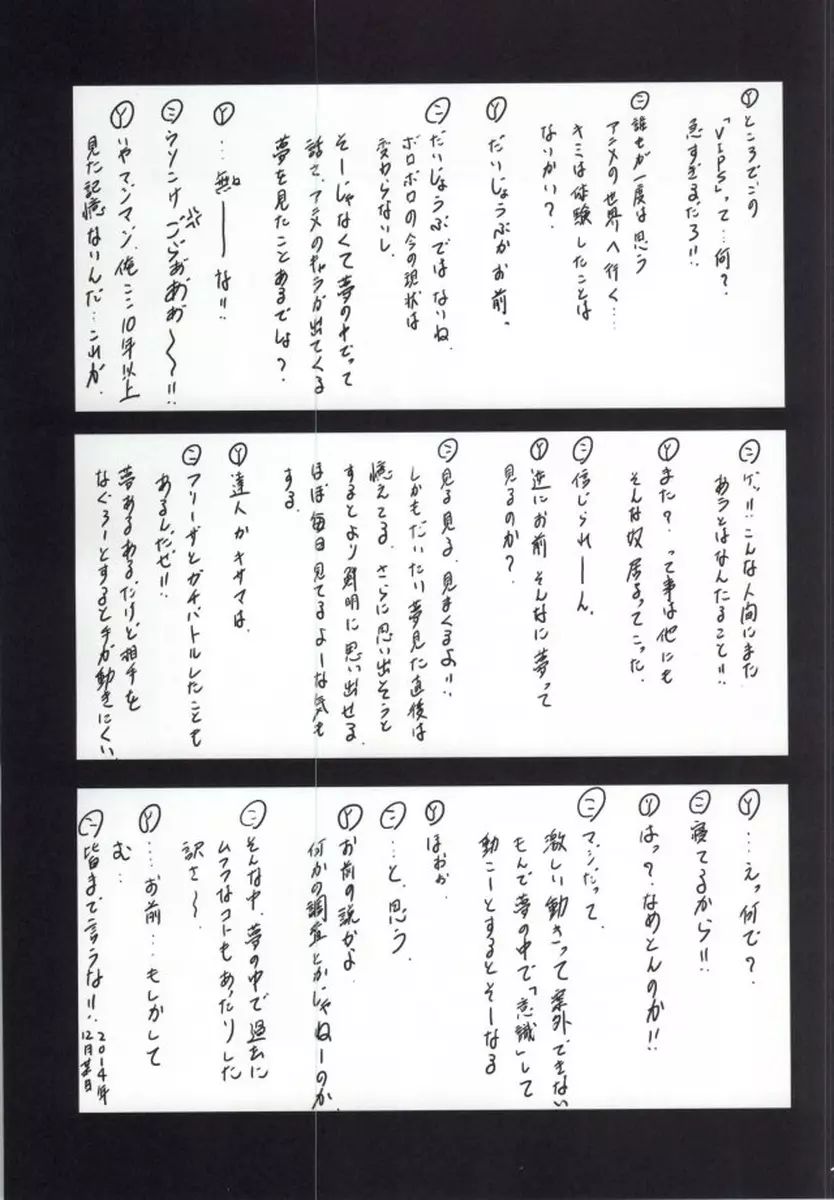 Ⓨところでこの
「VIPS」って…何?
怠すぎるだろ!!
㊁誰もが一度は思う
アニメの世界へ行く…
キミは体験したことは
ないかい?
Ⓨだいじょうぶかお前。
㊁だいじょうぶではないね。
ボロボロの今の現状は
変わらないし。
そーじゃなくて夢の中でって
話さ、アニメのキャラが出てくる
夢を見たことあるでしょ?
Ⓨ…無ーーな!!
㊁ウソこけごらぁぁぁ〜〜!!
Ⓨいやマンマン、俺ここ10年以上
見た記憶ないんだ…これが。
㊁ゲッ!!こんな人間にまた
あうとはなんたること!!
Ⓨまた?って事は他にも
そんな奴居るってこった。
㊁信じられーん。
Ⓨ逆にお前そんなに夢って
見るのか?
㊁見る見る、見まくるよ!!
しかもだいたい夢見た直後は
憶えてる。さらに思い出そうと
するとより鮮明に思い出せる。
ほぼ毎日見てるよーな気も
する。
Ⓨ達人かキサマは。
㊁フリーザとガチバトルしたことも
あるしだぜ!!
夢あるあるだけど相手を
なぐろーとすると手が動きにくい。
Ⓨ…えっ何で?
㊁寝てるから!!
Ⓨはっ?なめとんのか!!
㊁マジだって。
激しい動きって案外できない
もんで夢の中で「意識」して
動こーとするとそーなる
Ⓨほぉぉ
㊁…と、思う。
Ⓨお前の説かよ
何かの調査とかじゃねーのか。
㊁そんな中、夢の中で過去に
ムフフなコトもあったりした
訳さ〜。
Ⓨ…お前…もしかして
む…
㊁皆まで言うな!!
2014年
12月某日